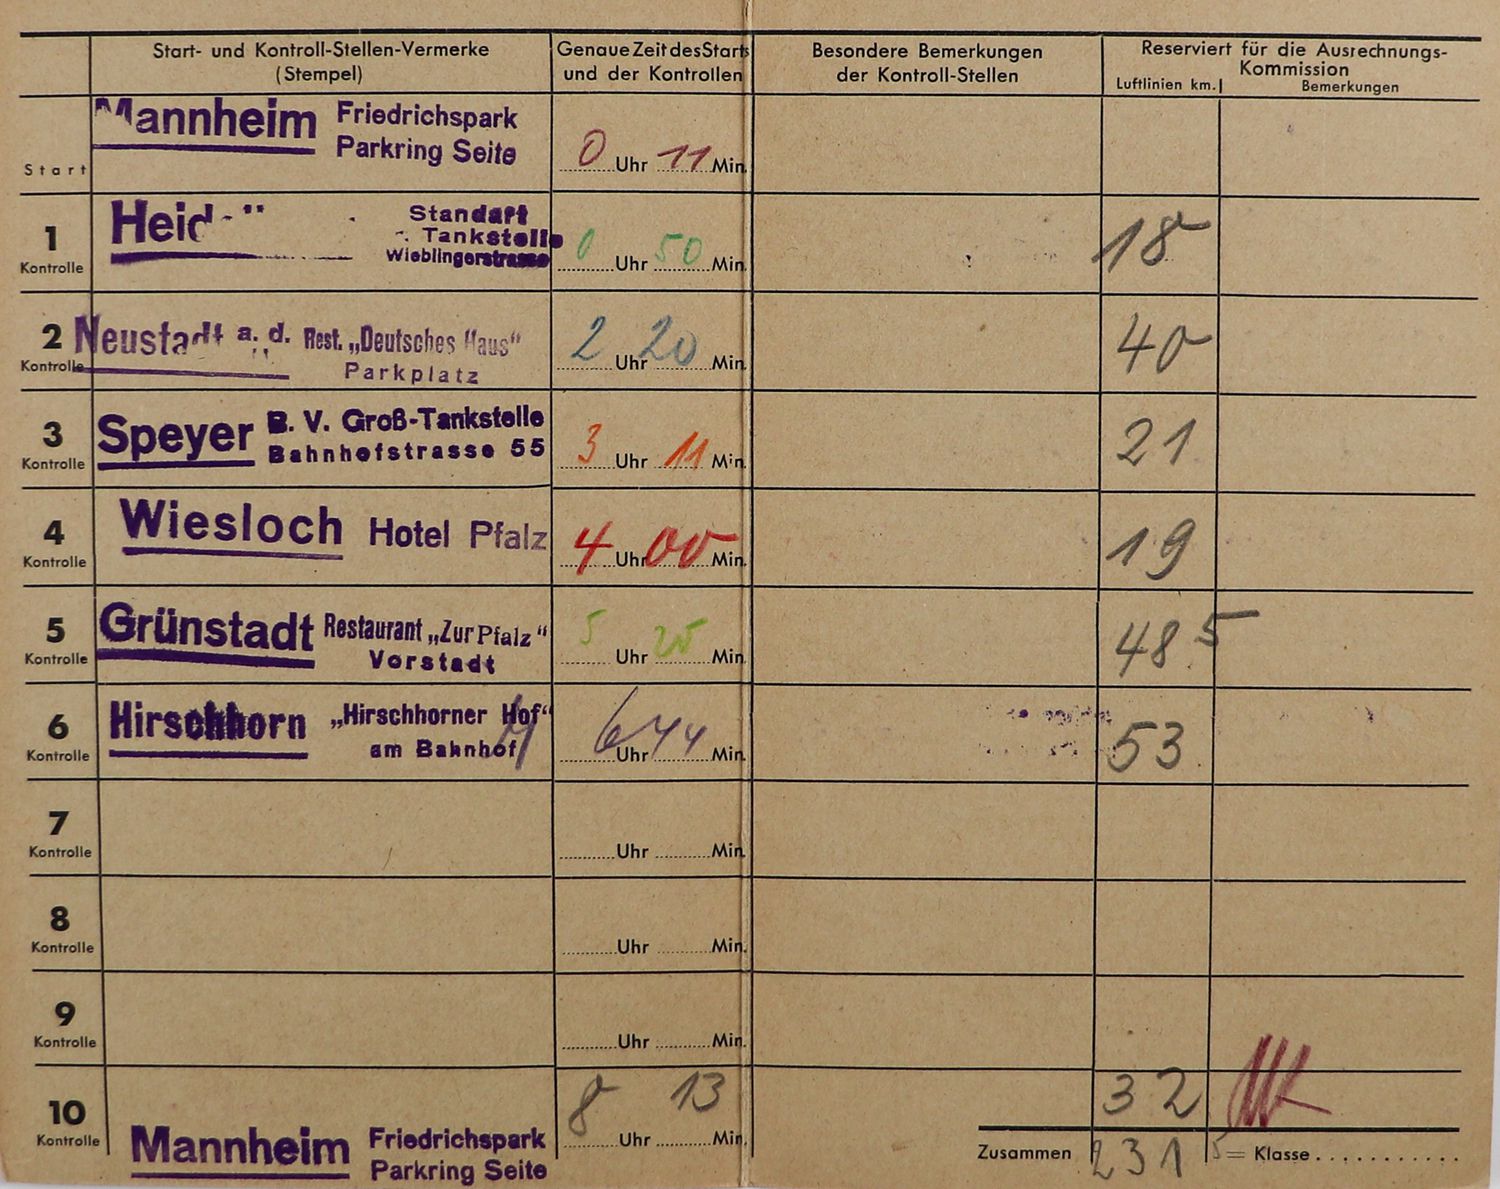 Start- und Kontroll-Stellen-Vermerke
(Stempel)
Genaue Zeit des Starts
und der Kontrollen
Besondere Bemerkungen
der Kontroll-Stellen
Reserviert für die Ausrechnungs-
Kommission
Luftlinien km.
Bemerkungen
Start
Mannheim Friedrichspark
Parkring Seite
0 Uhr 11 Min.
1
Kontrolle
Heid
Standart
Tankstelle
Wieblingerstrasse
0 Uhr 50 Min.
18
2
Kontrolle
Neustadt a. d. Rest. „Deutsches Haus"
Parkplatz
2 Uhr 20 Min.
40
3
Kontrolle
Speyer B. V. Groß-Tankstelle
Bahnhofstrasse 55
3 Uhr 11 Min.
21
4
Kontrolle
Wiesloch Hotel Pfalz
4 Uhr 00 Min.
19
5
Kontrolle
Grünstadt Restaurant „Zur Pfalz"
Vorstadt
5 Uhr 25 Min.
48.5
6
Kontrolle
Hirschhorn „Hirschhorner Hof"
am Bahnhof
6 Uhr 44 Min.
53
7
Kontrolle
Uhr Min.
8
Kontrolle
Uhr Min.
9
Kontrolle
Uhr Min.
10
Kontrolle
Mannheim Friedrichspark
Parkring Seite
8 Uhr 13 Min.
32
Zusammen 231 5 = Klasse